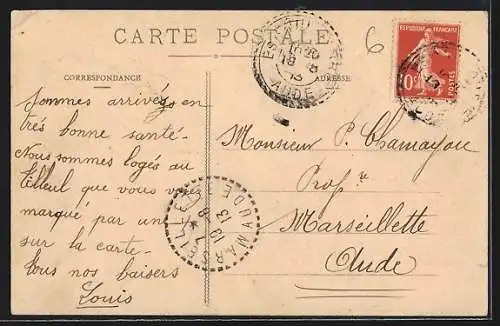 CARTE POSTALE
6
CORRESPONDANCE
ADRESSE
REPUBLIQUE FRANÇAISE
10
18 - 8
13
AUDE
Sommes arrivés en
très bonne santé -
Nous sommes logés au
Tilleul que vous voyez
marqué par une
sur la carte -
Tous nos baisers
Louis
Monsieur P. Chamayou
Profre
Marseillette
Aude
MARSEILLETTE
AUDE
8
13